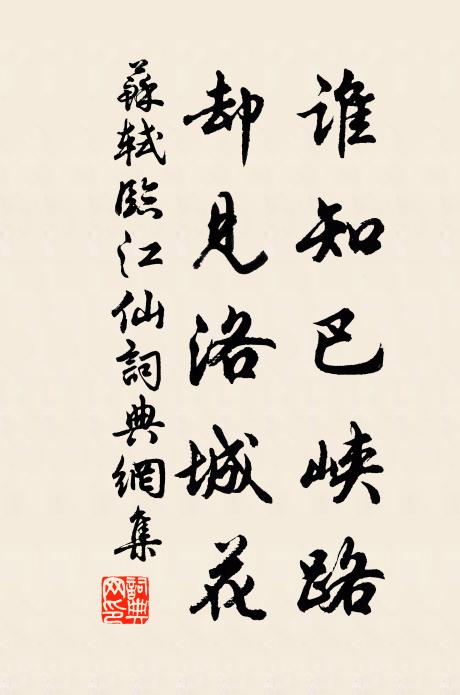 誰知巴峽路
却見洛城花
蘇軾臨江仙詞典網集
詞典網印